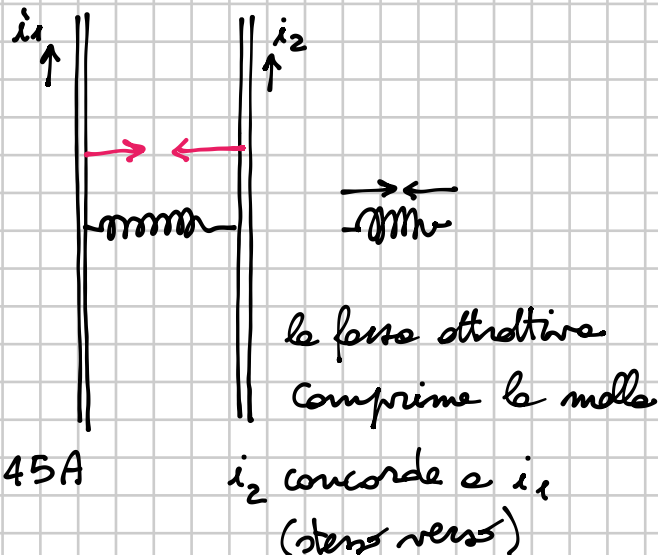 i₁
i₂
la forza attrattiva
comprime la molla
45A
i₂ concorde a i₁
(stesso verso)